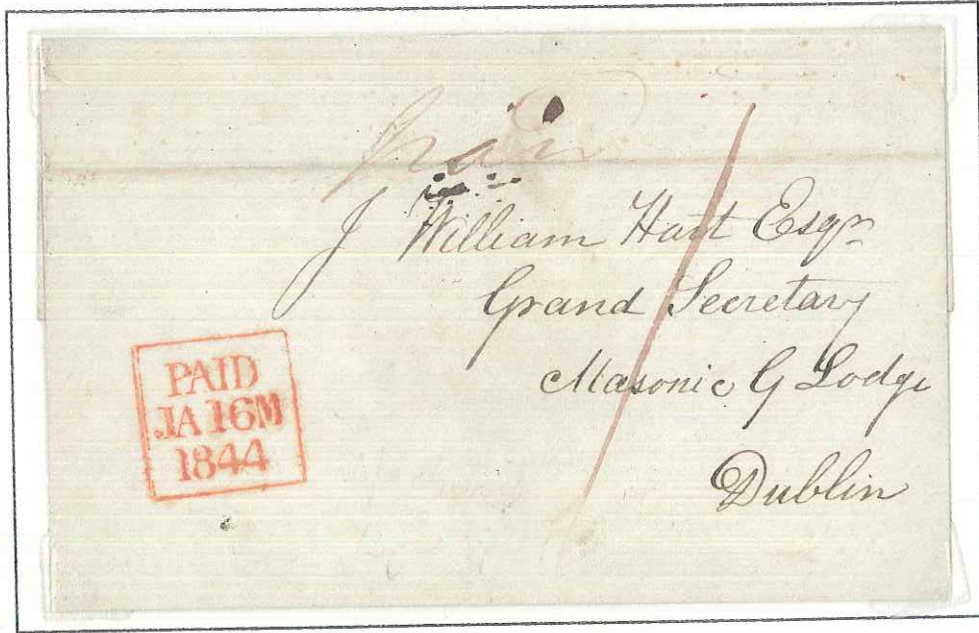 paid
J William Hart Esqr
Grand Secretary
Masonic G Lodge
Dublin
PAID
JA 16M
1844
1